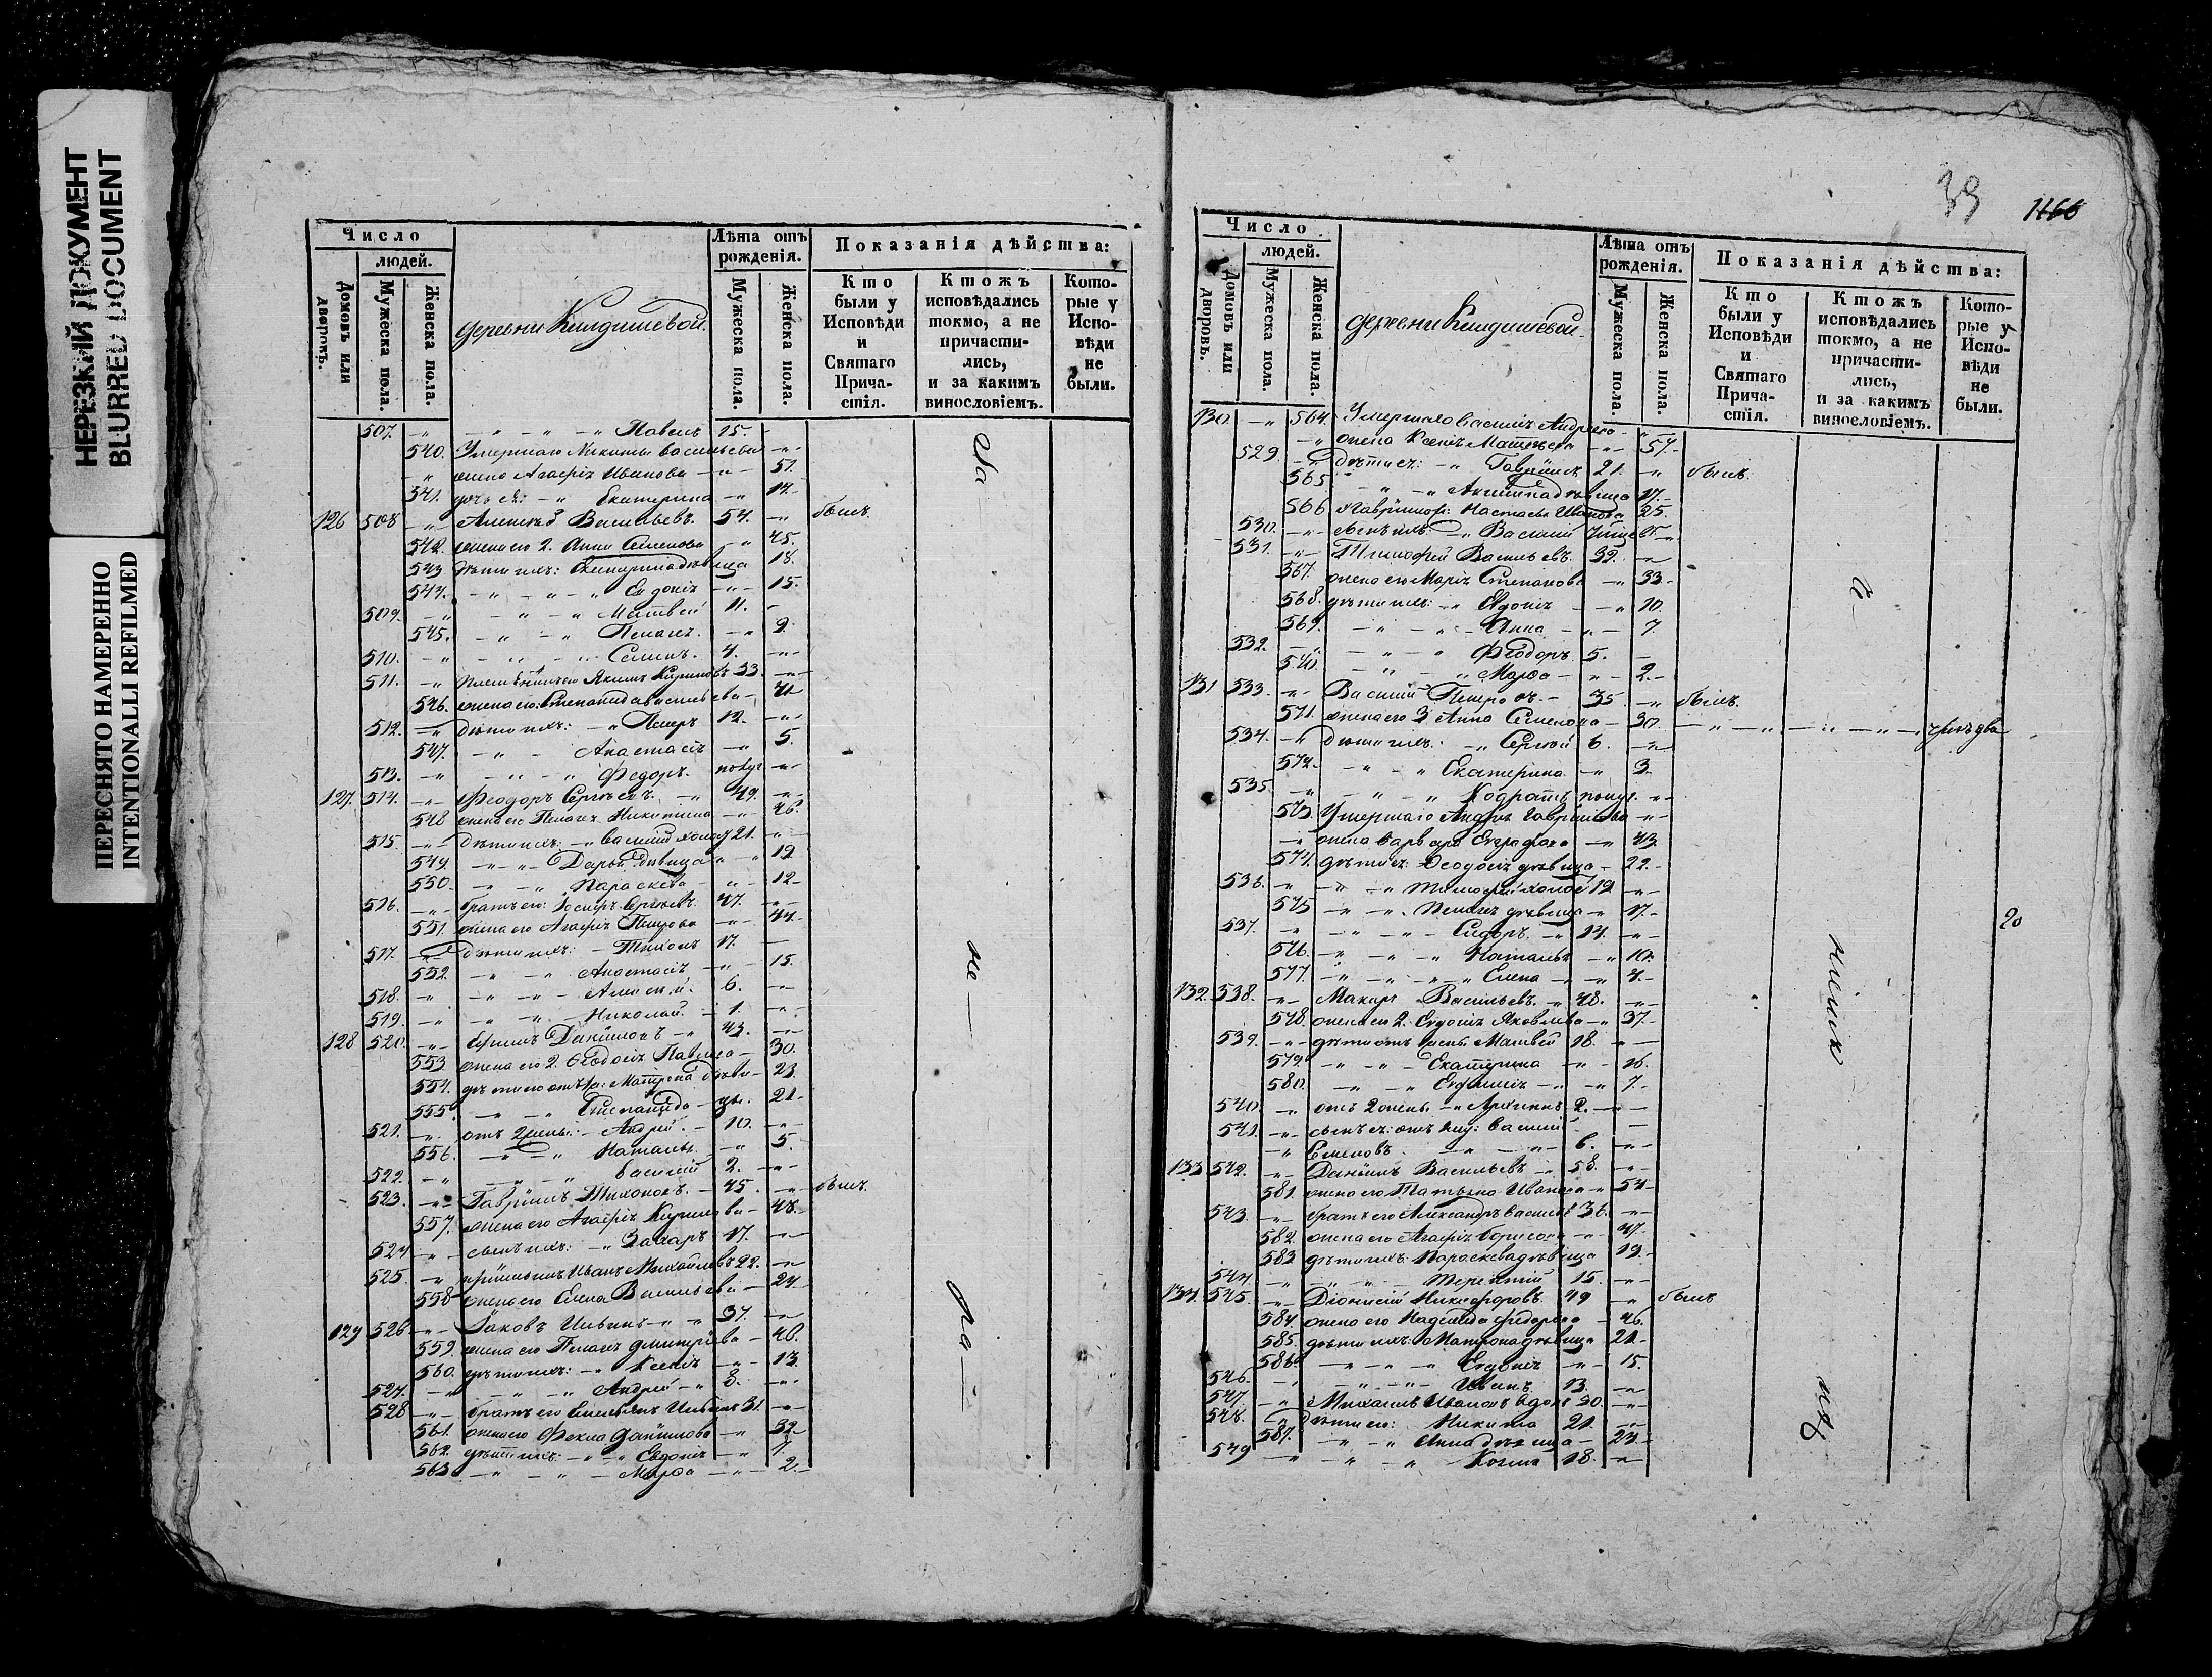 НЕРЕЗКИЙ ДОКУМЕНТ
BLURRED DOCUMENT
ПЕРЕСНЯТО НАМЕРЕННО
INTENTIONALLI REFILMED
Число
людей.
Домовъ или дворовъ.
Мужеска пола.
Женска пола.
деревни
Лѣта отъ рожденія.
Мужеска пола.
Женска пола.
Показанія дѣйства:
Кто были у Исповѣди и Святаго Прича-стія.
Ктожъ исповѣдались токмо, а не причасти-лись, и за какимъ винословіемъ.
Кото-рые у Испо-вѣди не были.
507. Павелъ 15.
540. Умершаго Никиты Васильева
жена Агафія Иванова 51.
541. дочь ея: Екатерина 14.
126 508 Алексѣй Васильевъ. 54. былъ
542. жена его 2. Анна Семенова 45.
543 дѣти ихъ: Екатерина дѣвица 18.
544. Евдокія 15.
509. Матвей 11.
545. Пелагея 9
510. Семенъ. 4.
511. Якимъ Кириловъ 33.
546. жена его: Степанида Васильева 41
512. дѣти ихъ: Петръ 12.
547. Анастасія 5.
513. Федоръ.
127. 514. Феодоръ Сергѣевъ. 49.
548 жена его Пелагея Никитина 46.
515. дѣти ихъ: Василий 21.
549. Дарья дѣвица 19
550. Параскева 12
516. братъ его: Іосифъ Сергѣевъ. 47.
551. жена его Агафія Петрова 44.
517. дѣти ихъ: Тихонъ 17.
552. Анастасія 15.
518. Алексѣй. 6.
519. Николай. 1.
128 520. Даниловъ 43.
553. жена его 2. Феодосія Павлова 30.
554. Матрена 23.
555. Степанида 21.
521. отъ 2 жены: Андрей. 10.
556. Наталья 5.
522. Василий 2.
523. Гаврiилъ Тихоновъ. 45. былъ
557. жена его Агафія Кирилова 48.
524 сынъ ихъ: Захаръ 17.
525. Иванъ Михайловъ 22.
558 жена его Елена Васильева 24
129 526 Іаковъ Ильинъ 37.
559. жена его Пелагея Дмитріева 46.
560. дѣти ихъ: Ксенія 13.
527. Андрей 8.
528 братъ его Емельянъ Ильинъ 31.
561. жена его Фекла Данилова 32
562. дѣти ихъ: Евдокія 7
563 Марфа 2.
На
не
ра
39
1166
Число
людей.
Домовъ или дворовъ.
Мужеска пола.
Женска пола.
деревни
Лѣта отъ рожденія.
Мужеска пола.
Женска пола.
Показанія дѣйства:
Кто были у Исповѣди и Святаго Прича-стія.
Ктожъ исповѣдались токмо, а не причасти-лись, и за какимъ винословіемъ.
Кото-рые у Испо-вѣди не были.
130. 564. Умершаго Василія Андреева
жена Ксенія Матвѣева 57.
529. дѣти ея: Гаврiилъ 21. былъ.
565 Акилина дѣвица 17.
566. Настасья Иванова 25.
530. сынъ ихъ: Василий
531. Тимофей Васильевъ. 32.
567. жена его Марія Степанова 33.
568. дѣти ихъ: Евдокія 10.
569. Анна 7.
532. Феодоръ 5.
570. Марфа 2.
131 533. Василий Петровъ 35 былъ.
571. жена его 3 Анна Семенова 30.
534. дѣти ихъ: Сергей 6.
572. Екатерина 3.
535 Кодратъ
573. Умершаго Андрея Гаврилова
жена Варвара Евграфова 43
574. дѣти ея: Феодосія дѣвица 22.
536. Тимофей 19
575 Пелагея дѣвица 17.
537. Сидоръ. 14.
576. Наталья 10.
577. Елена 4.
20
132. 538. Макаръ Васильевъ. 48.
578. жена его 2. Евдокія Яковлева 37.
539. Матвей 18.
579. Екатерина 16.
580. Евфимія 7.
540. отъ 2 жены. 2.
541. Василий
Семеновъ. 6.
133 542. Данiилъ Васильевъ 58.
581. жена его Татьяна Иванова 54
543. братъ его Александръ Васильевъ 36.
582. жена его Агафія Борисова 47.
583 дѣти ихъ: Параскева дѣвица 19.
544. Терентий 15.
134 545. Діонисій Никифоровъ. 49 былъ
584 жена его Надежда Федорова 46.
585. дѣти ихъ: Матрона дѣвица 21
586. Евдокія 15.
546. Иванъ 13.
547. Михаилъ Ивановъ 50.
548. дѣти его: Никита 21.
587. Анна дѣвица 23
549 Козма 18.